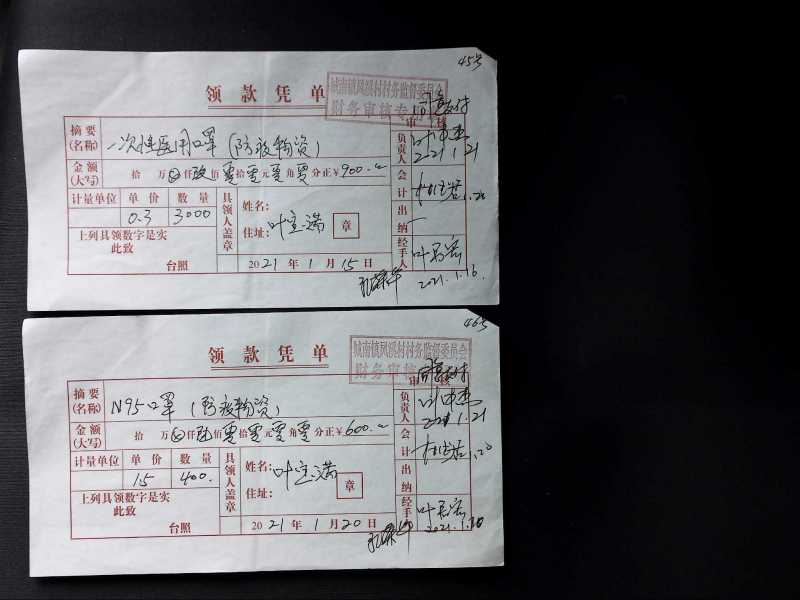 45号
城南镇凤溪村村务监督委员会
财务审核专用章
领款凭单
同意支付
审 核
摘要(名称) 一次性医用口罩(防疫物资)
负责人 2021.1.21
金额(大写) 拾 万 仟 玖 佰 零 拾 零 元 零 角 零 分正 ¥900.~
会计 1.20
计量单位 单价 数量
0.3 3000
具领人盖章
姓名:
住址:
叶宝满
章
出纳
上列具领数字是实
此致
台照
2021年1月15日
经手人 2021.1.16
46号
城南镇凤溪村村务监督委员会
财务审核
领款凭单
同意支付
审 核
摘要(名称) N95口罩(防疫物资)
负责人 2021.1.21
金额(大写) 拾 万 仟 陆 佰 零 拾 零 元 零 角 零 分正 ¥600.~
会计 1.20
计量单位 单价 数量
1.5 400.
具领人盖章
姓名:
住址:
叶宝满
章
出纳
上列具领数字是实
此致
台照
2021年1月20日
经手人